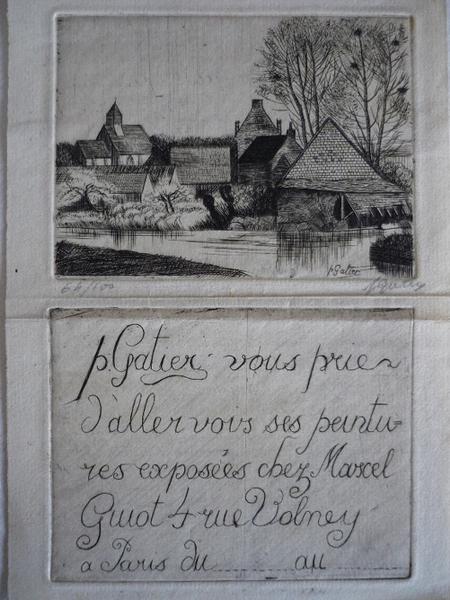 p.Gatier
66/100 p.Gatier
p.Gatier vous prie
d'aller voir ses peintu-
res exposées chez Marcel
Guiot 4 rue Volney
a Paris du ........ au ........